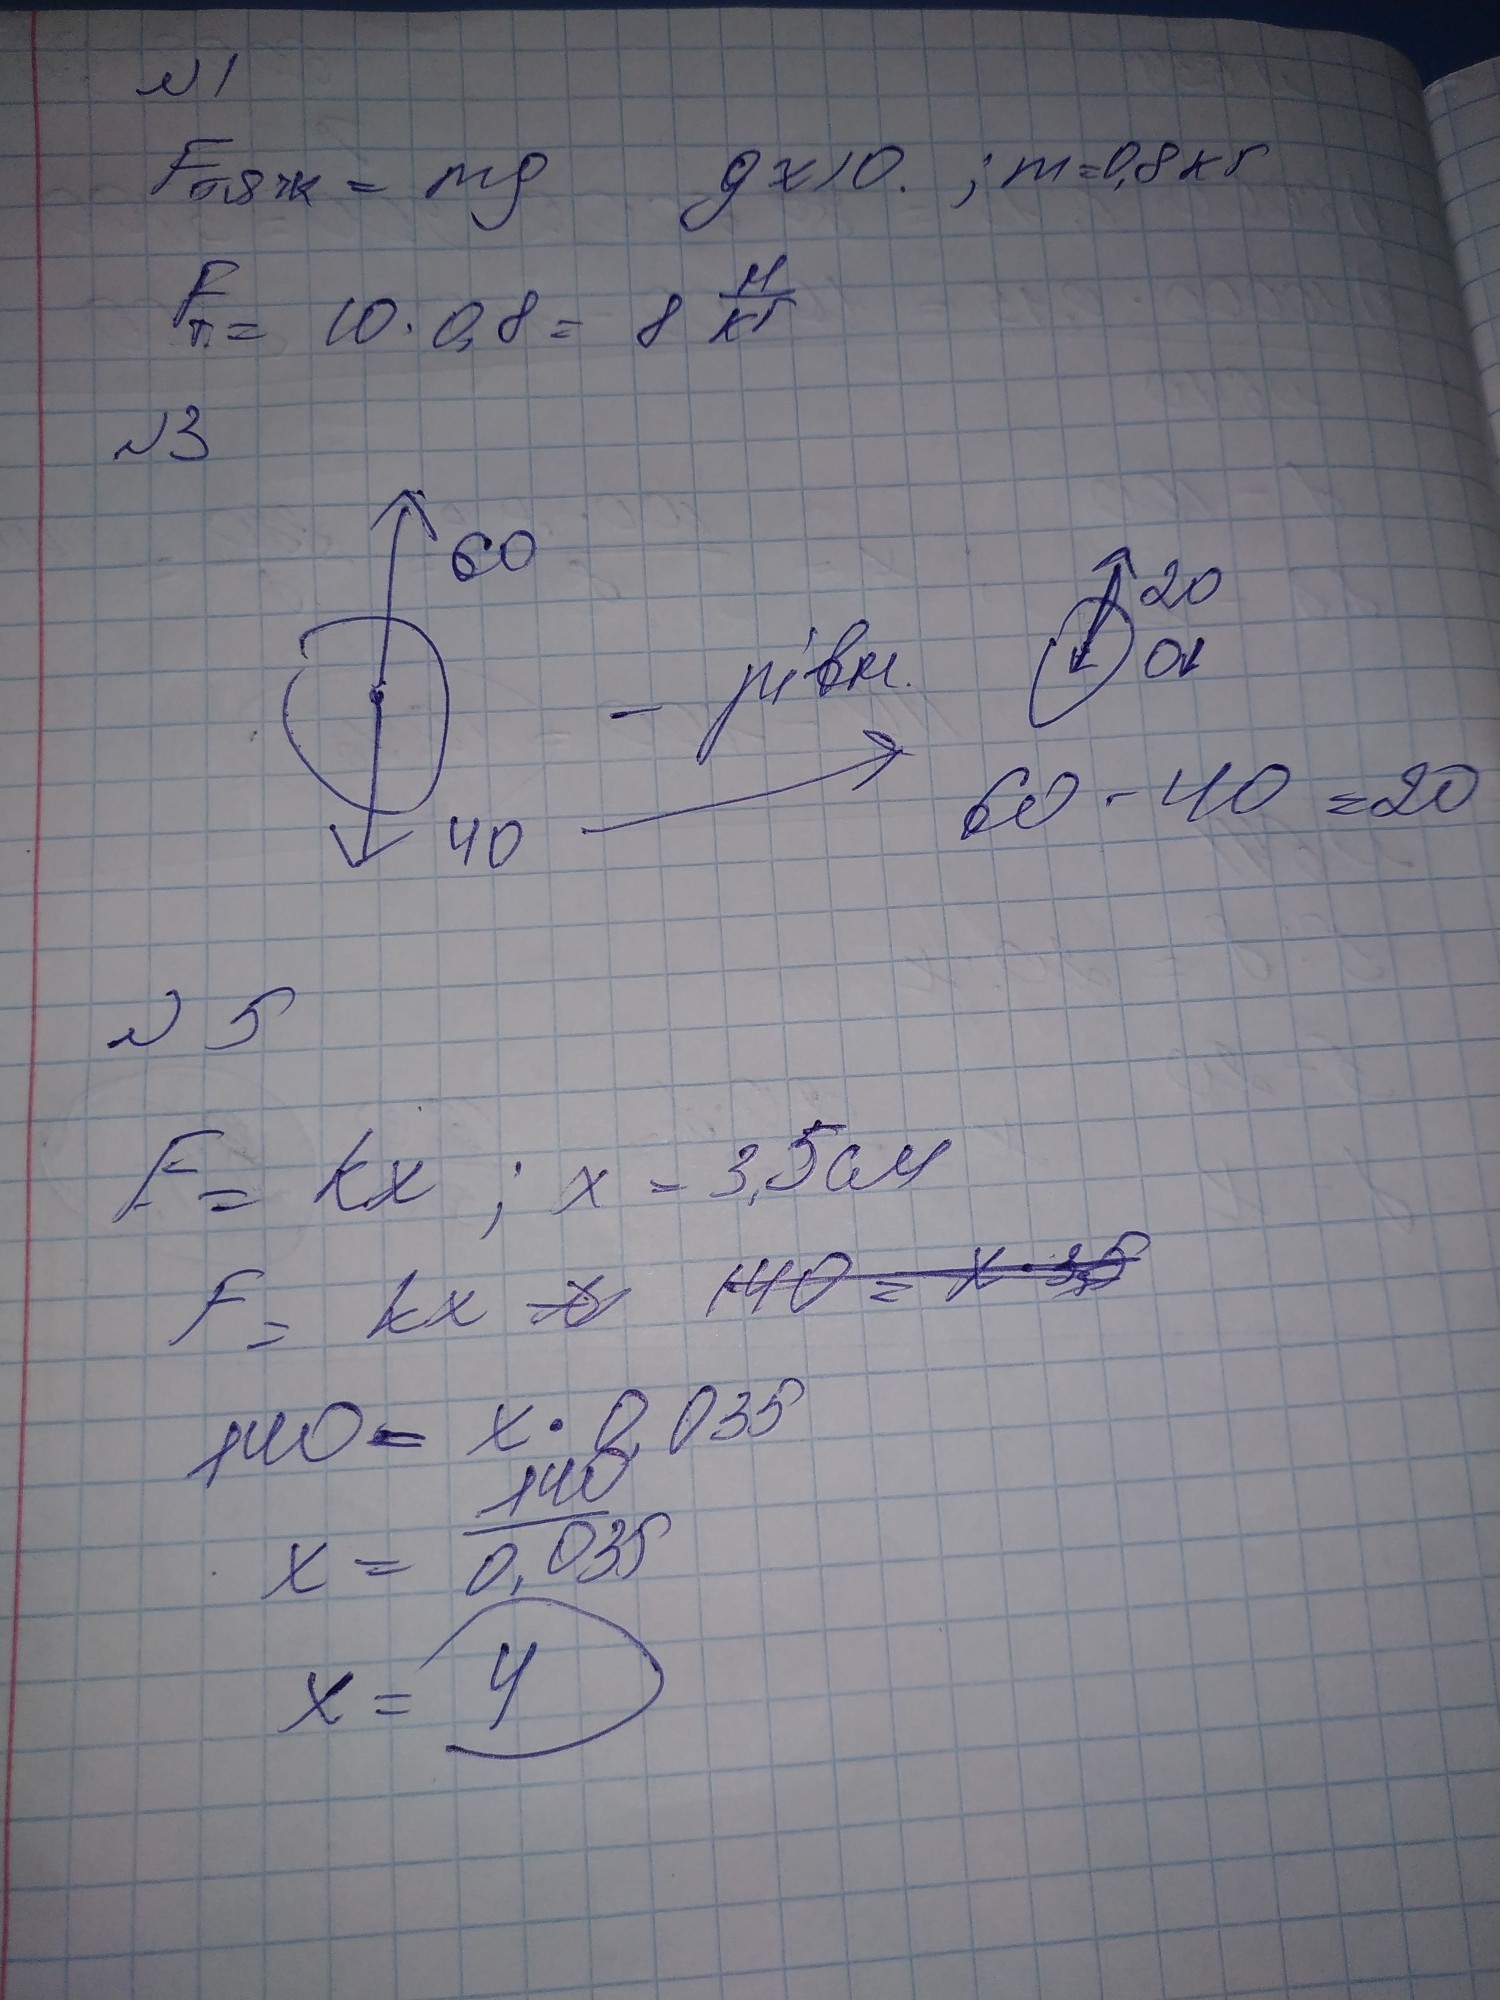 №1
Fтяж = mg g≈10. ; m=0,8кг
Fт = 10·0,8 = 8 Н/кг
№3
60
20
0
- рівн.
40
60 - 40 = 20
№5
F = kx ; x = 3,5см
F = kx 140 = x · 3,5
140 = x · 0,035
x = 140/0,035
x = 4